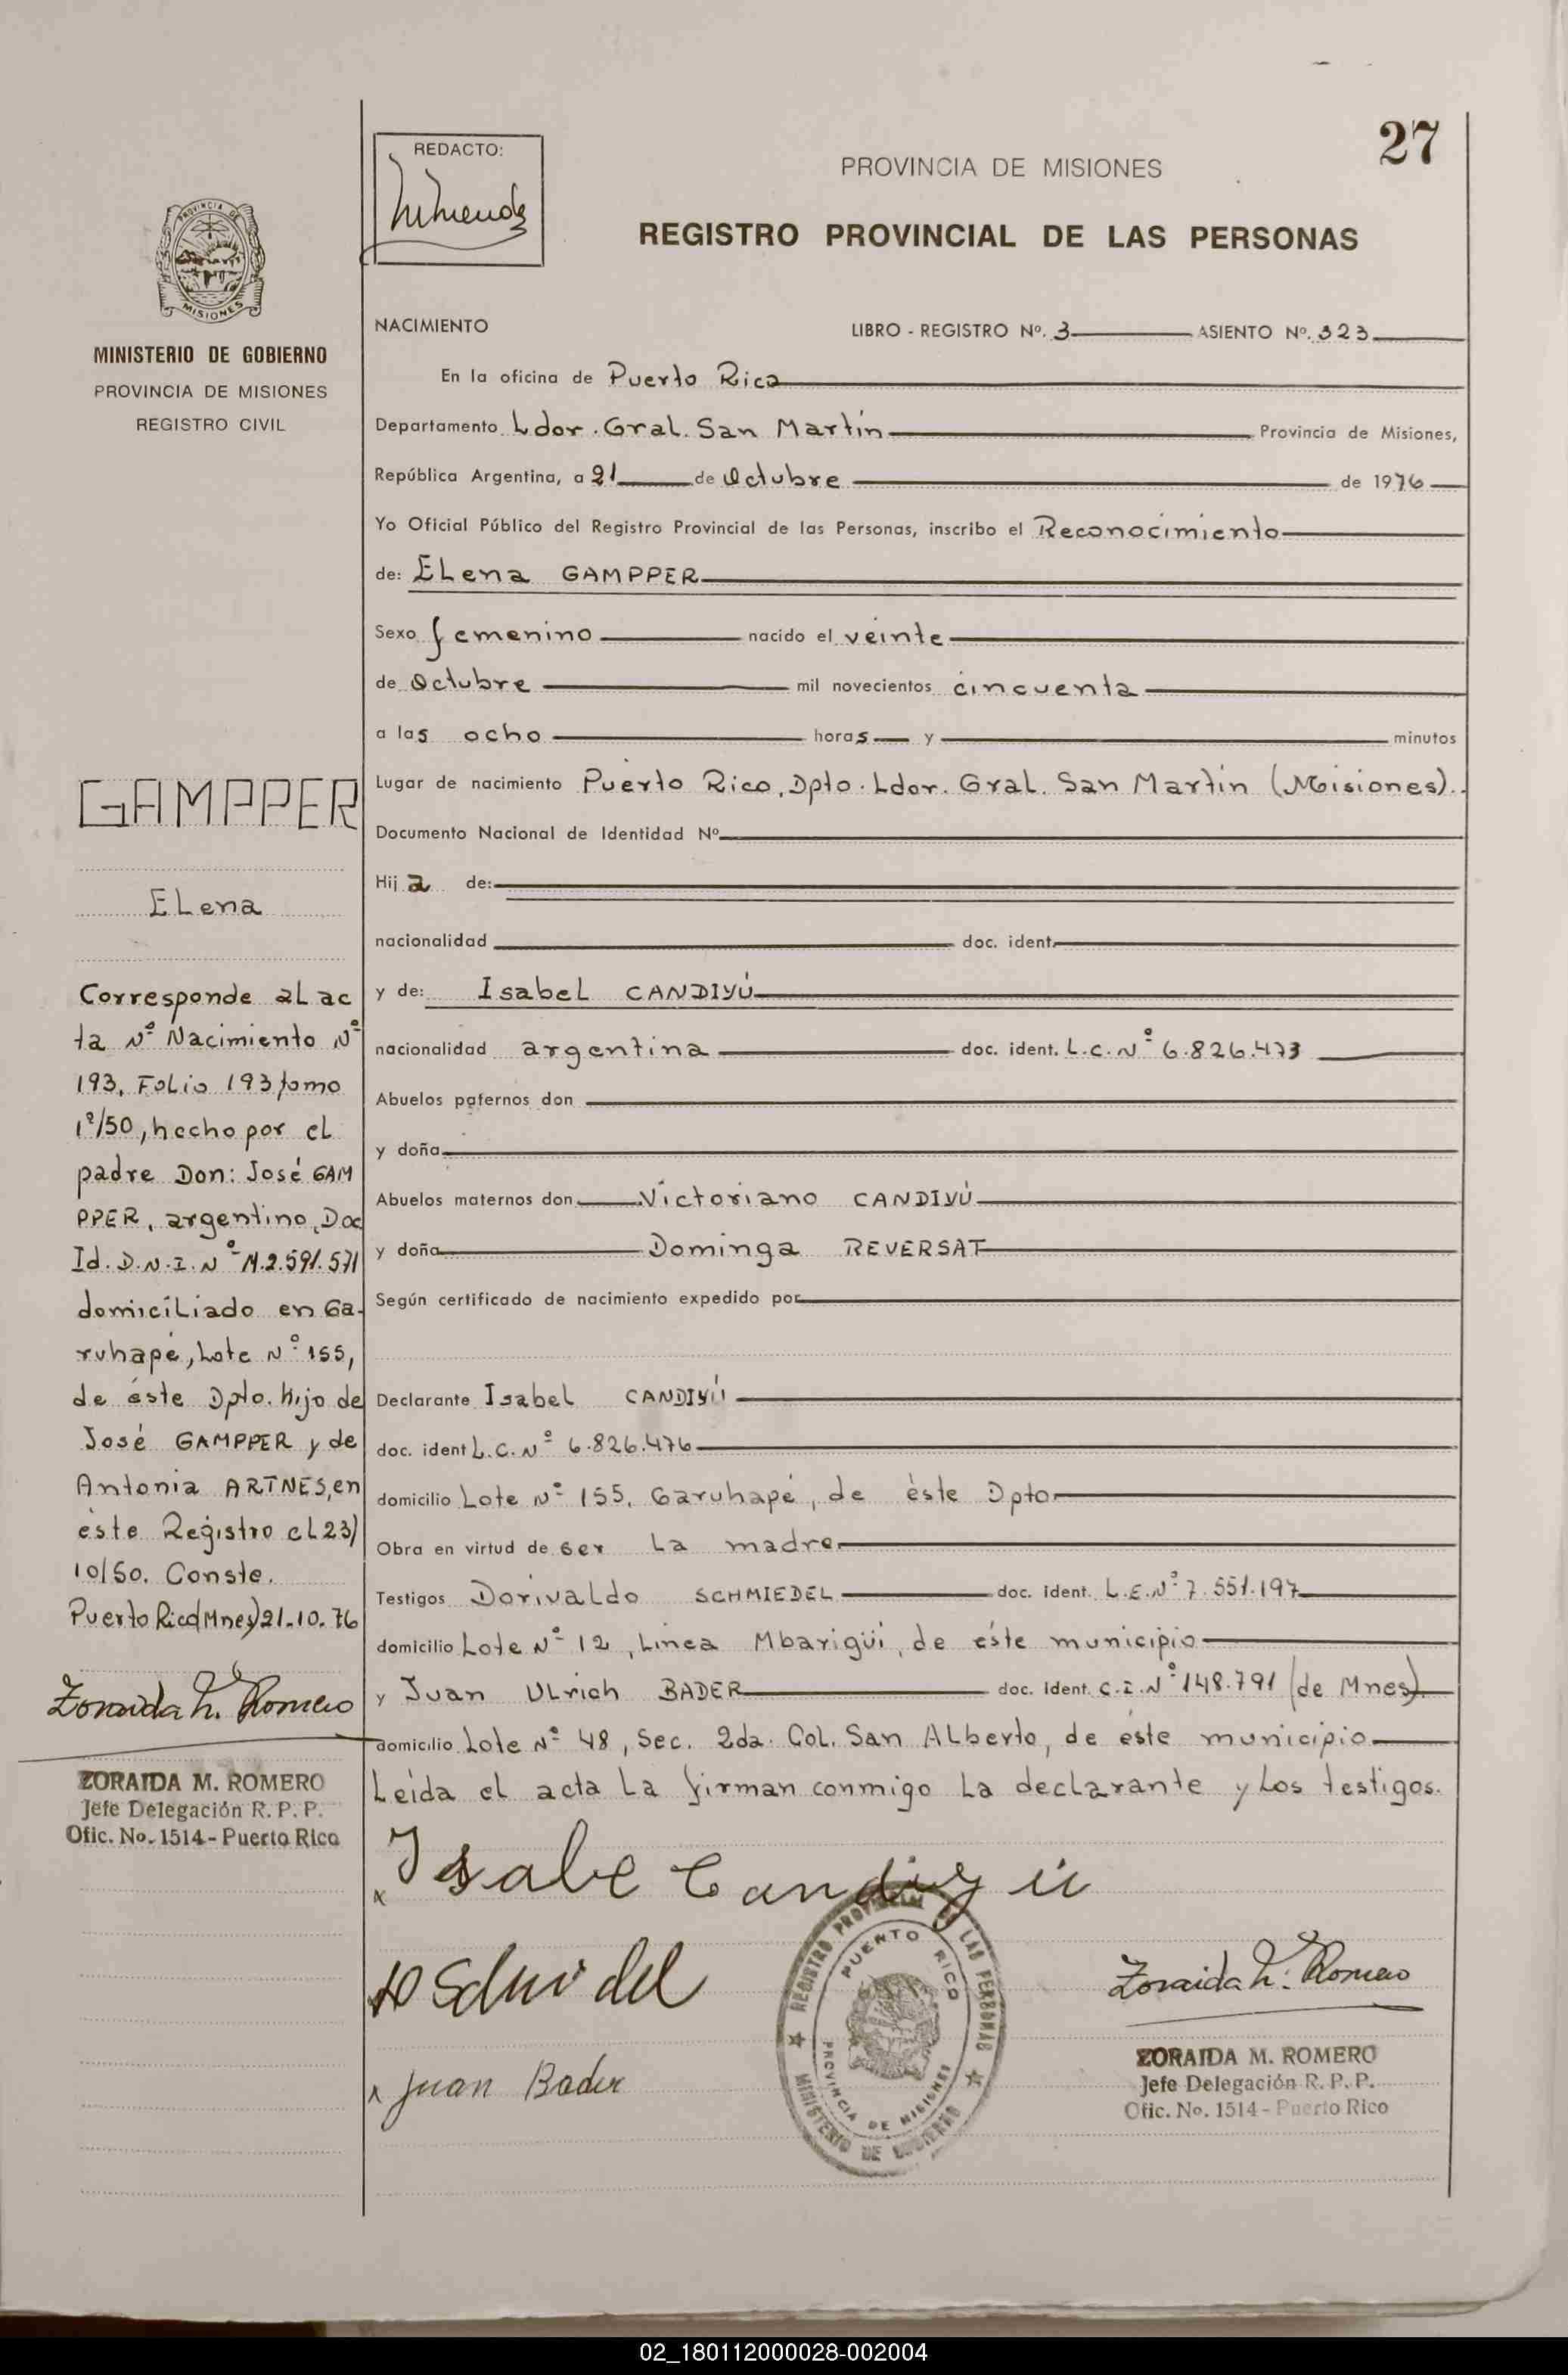 27
REDACTO:
PROVINCIA DE MISIONES
REGISTRO PROVINCIAL DE LAS PERSONAS
PROVINCIA DE
MISIONES
MINISTERIO DE GOBIERNO
PROVINCIA DE MISIONES
REGISTRO CIVIL
GAMPPER
ELena
Corresponde al ac
ta Nº Nacimiento Nº
193, Folio 193 tomo
1º/50, hecho por el
padre Don: José GAM
PPER, argentino, Doc
Id. D.N.I. Nº M.2.591.571
domiciliado en Ga-
ruhapé, Lote Nº 155,
de éste Dpto. hijo de
José GAMPPER y de
Antonia ARTNES, en
éste Registro el 23/
10/50. Conste.
Puerto Rico (Mnes) 21.10.76
Zoraida M. Romero
ZORAIDA M. ROMERO
Jefe Delegación R. P. P.
Ofic. No. 1514 - Puerto Rico
NACIMIENTO LIBRO - REGISTRO Nº. 3 ASIENTO Nº. 323
En la oficina de Puerto Rico
Departamento Ldor. Gral. San Martín Provincia de Misiones,
República Argentina, a 21 de Octubre de 1976
Yo Oficial Público del Registro Provincial de las Personas, inscribo el Reconocimiento
de: ELena GAMPPER
Sexo femenino nacido el veinte
de Octubre mil novecientos cincuenta
a las ocho horas y minutos
Lugar de nacimiento Puerto Rico, Dpto. Ldor. Gral. San Martín (Misiones).
Documento Nacional de Identidad Nº
Hija de:
nacionalidad doc. ident.
y de: Isabel CANDIYÚ
nacionalidad argentina doc. ident. L.C. Nº 6.826.473
Abuelos paternos don
y doña
Abuelos maternos don Victoriano CANDIYÚ
y doña Dominga REVERSAT
Según certificado de nacimiento expedido por
Declarante Isabel CANDIYÚ
doc. ident L.C. Nº 6.826.476
domicilio Lote Nº 155, Garuhapé, de éste Dpto.
Obra en virtud de ser La madre
Testigos Dorivaldo SCHMIEDEL doc. ident. L.E. Nº 7.551.197
domicilio Lote Nº 12, Línea Mbarigüi, de éste municipio
y Juan ULrich BADER doc. ident. C.I. Nº 148.791 (de Mnes).
domicilio Lote Nº 48, Sec. 2da. Col. San ALberto, de éste municipio
Leída el acta La firman conmigo La declarante y Los testigos.
x Isabe Candiyú
D Schmidel
Zoraida M. Romero
x Juan Bader
REGISTRO PROVINCIAL DE LAS PERSONAS
PUERTO RICO
PROVINCIA DE MISIONES
MINISTERIO DE GOBIERNO
ZORAIDA M. ROMERO
Jefe Delegación R. P. P.
Ofic. No. 1514 - Puerto Rico
02_180112000028-002004